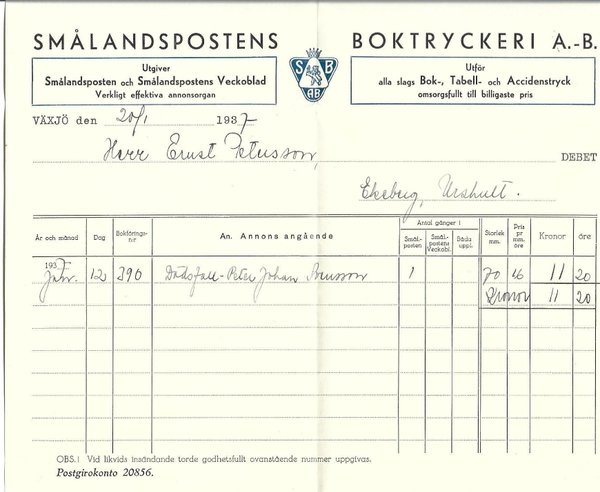 SMÅLANDSPOSTENS BOKTRYCKERI A.-B.
Utgiver
Smålandsposten och Smålandspostens Veckoblad
Verkligt effektiva annonsorgan
S B
AB
Utför
alla slags Bok-, Tabell- och Accidenstryck
omsorgsfullt till billigaste pris
VÄXJÖ den 20/1 1937
Herr Ernst Petersson, DEBET
Ekeberg, Urshult.
År och månad Dag Bokföringsnr An. Annons angående Antal gånger i Smålposten Smålpostens Veckobl. Båda uppl. Storlek mm. Pris pr mm. öre Kronor öre
1937
Jan. 12 390 Dödsfall - Peter Johan 1 70 16 11 20
Kronor 11 20
OBS.! Vid likvids insändande torde godhetsfullt ovanstående nummer uppgivas.
Postgirokonto 20856.